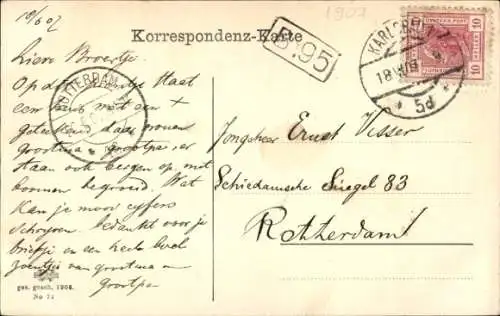 18/6 07
1907
Korrespondenz-Karte
B.95
KARLSBAD
18 VI 07
* 5d *
10 10
ROTTERDAM
Lieve Broertje.
Op dit kaartje staat
een huis met een +
geteekend daar wonen
grootma en grootpa, er
staan ook bergen op met
boomen begroeid. Wat
kan je mooi cyfers
schryven. Bedankt voor je
briefje en een heele boel
zoentjes van grootma en
Grootpa
Jongeheer Ernst Visser
Schiedamsche Singel 83
Rotterdam
ges. gesch. 1906.
No 71